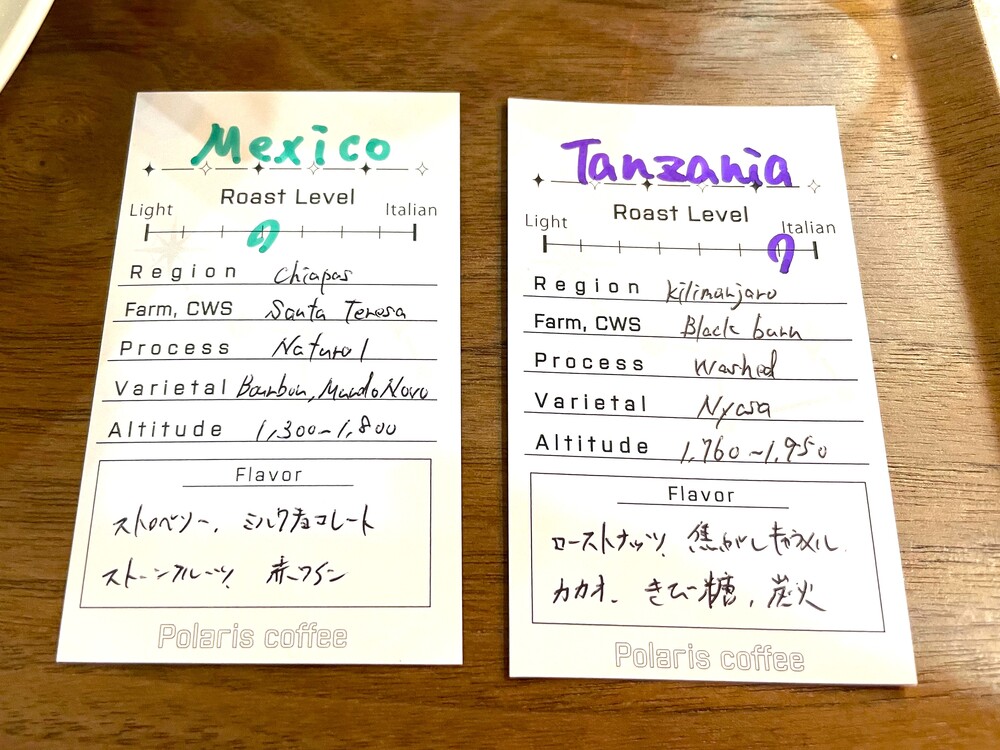 Mexico
Roast Level
Light Italian
Region Chiapas
Farm, CWS Santa Teresa
Process Natural
Varietal Bourbon, MundoNovo
Altitude 1,300~1,800
Flavor
ストロベリー、ミルクチョコレート
ストーンフルーツ、赤ワイン
Polaris coffee
Tanzania
Roast Level
Light Italian
Region Kilimanjaro
Farm, CWS Black burn
Process Washed
Varietal Nyasa
Altitude 1,760~1,950
Flavor
ローストナッツ、焦がしキャラメル、
カカオ、きび糖、炭火
Polaris coffee